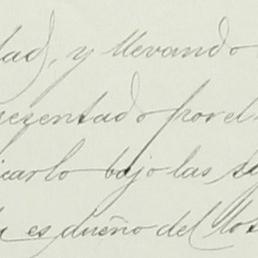 dad, y llevando
resentado por el
icarlo bajo las
es dueño del